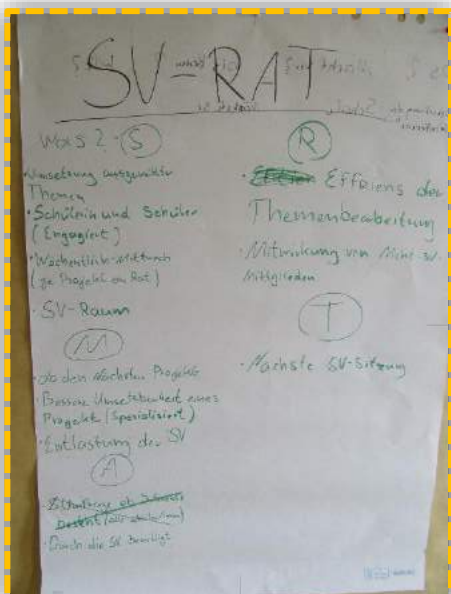 SV-RAT
Was? - S
• Umsetzung ausgewählter
Themen
• Schülerin und Schüler
(Engagiert)
• Wöchentlich-Mittwoch
(je Projekt ein Rat)
• SV-Raum
M
• ab den nächsten Projekte
• Bessere Umsetzbarkeit eines
Projekts (Spezialisiert)
• Entlastung der SV
A
• Durch die SV
R
• Effiziens der
Themenbearbeitung
• Mitwirkung von Mini-SV-
Mitgliedern
T
• Nächste SV-Sitzung